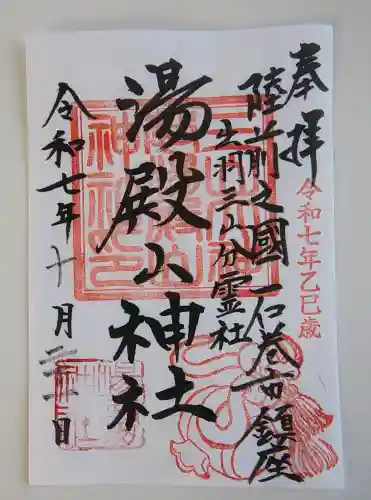 奉拝
令和七年乙巳歳
陸前之國 石巻市鎮座
出羽三山分霊社
湯殿山神社
令和七年十月二十一日